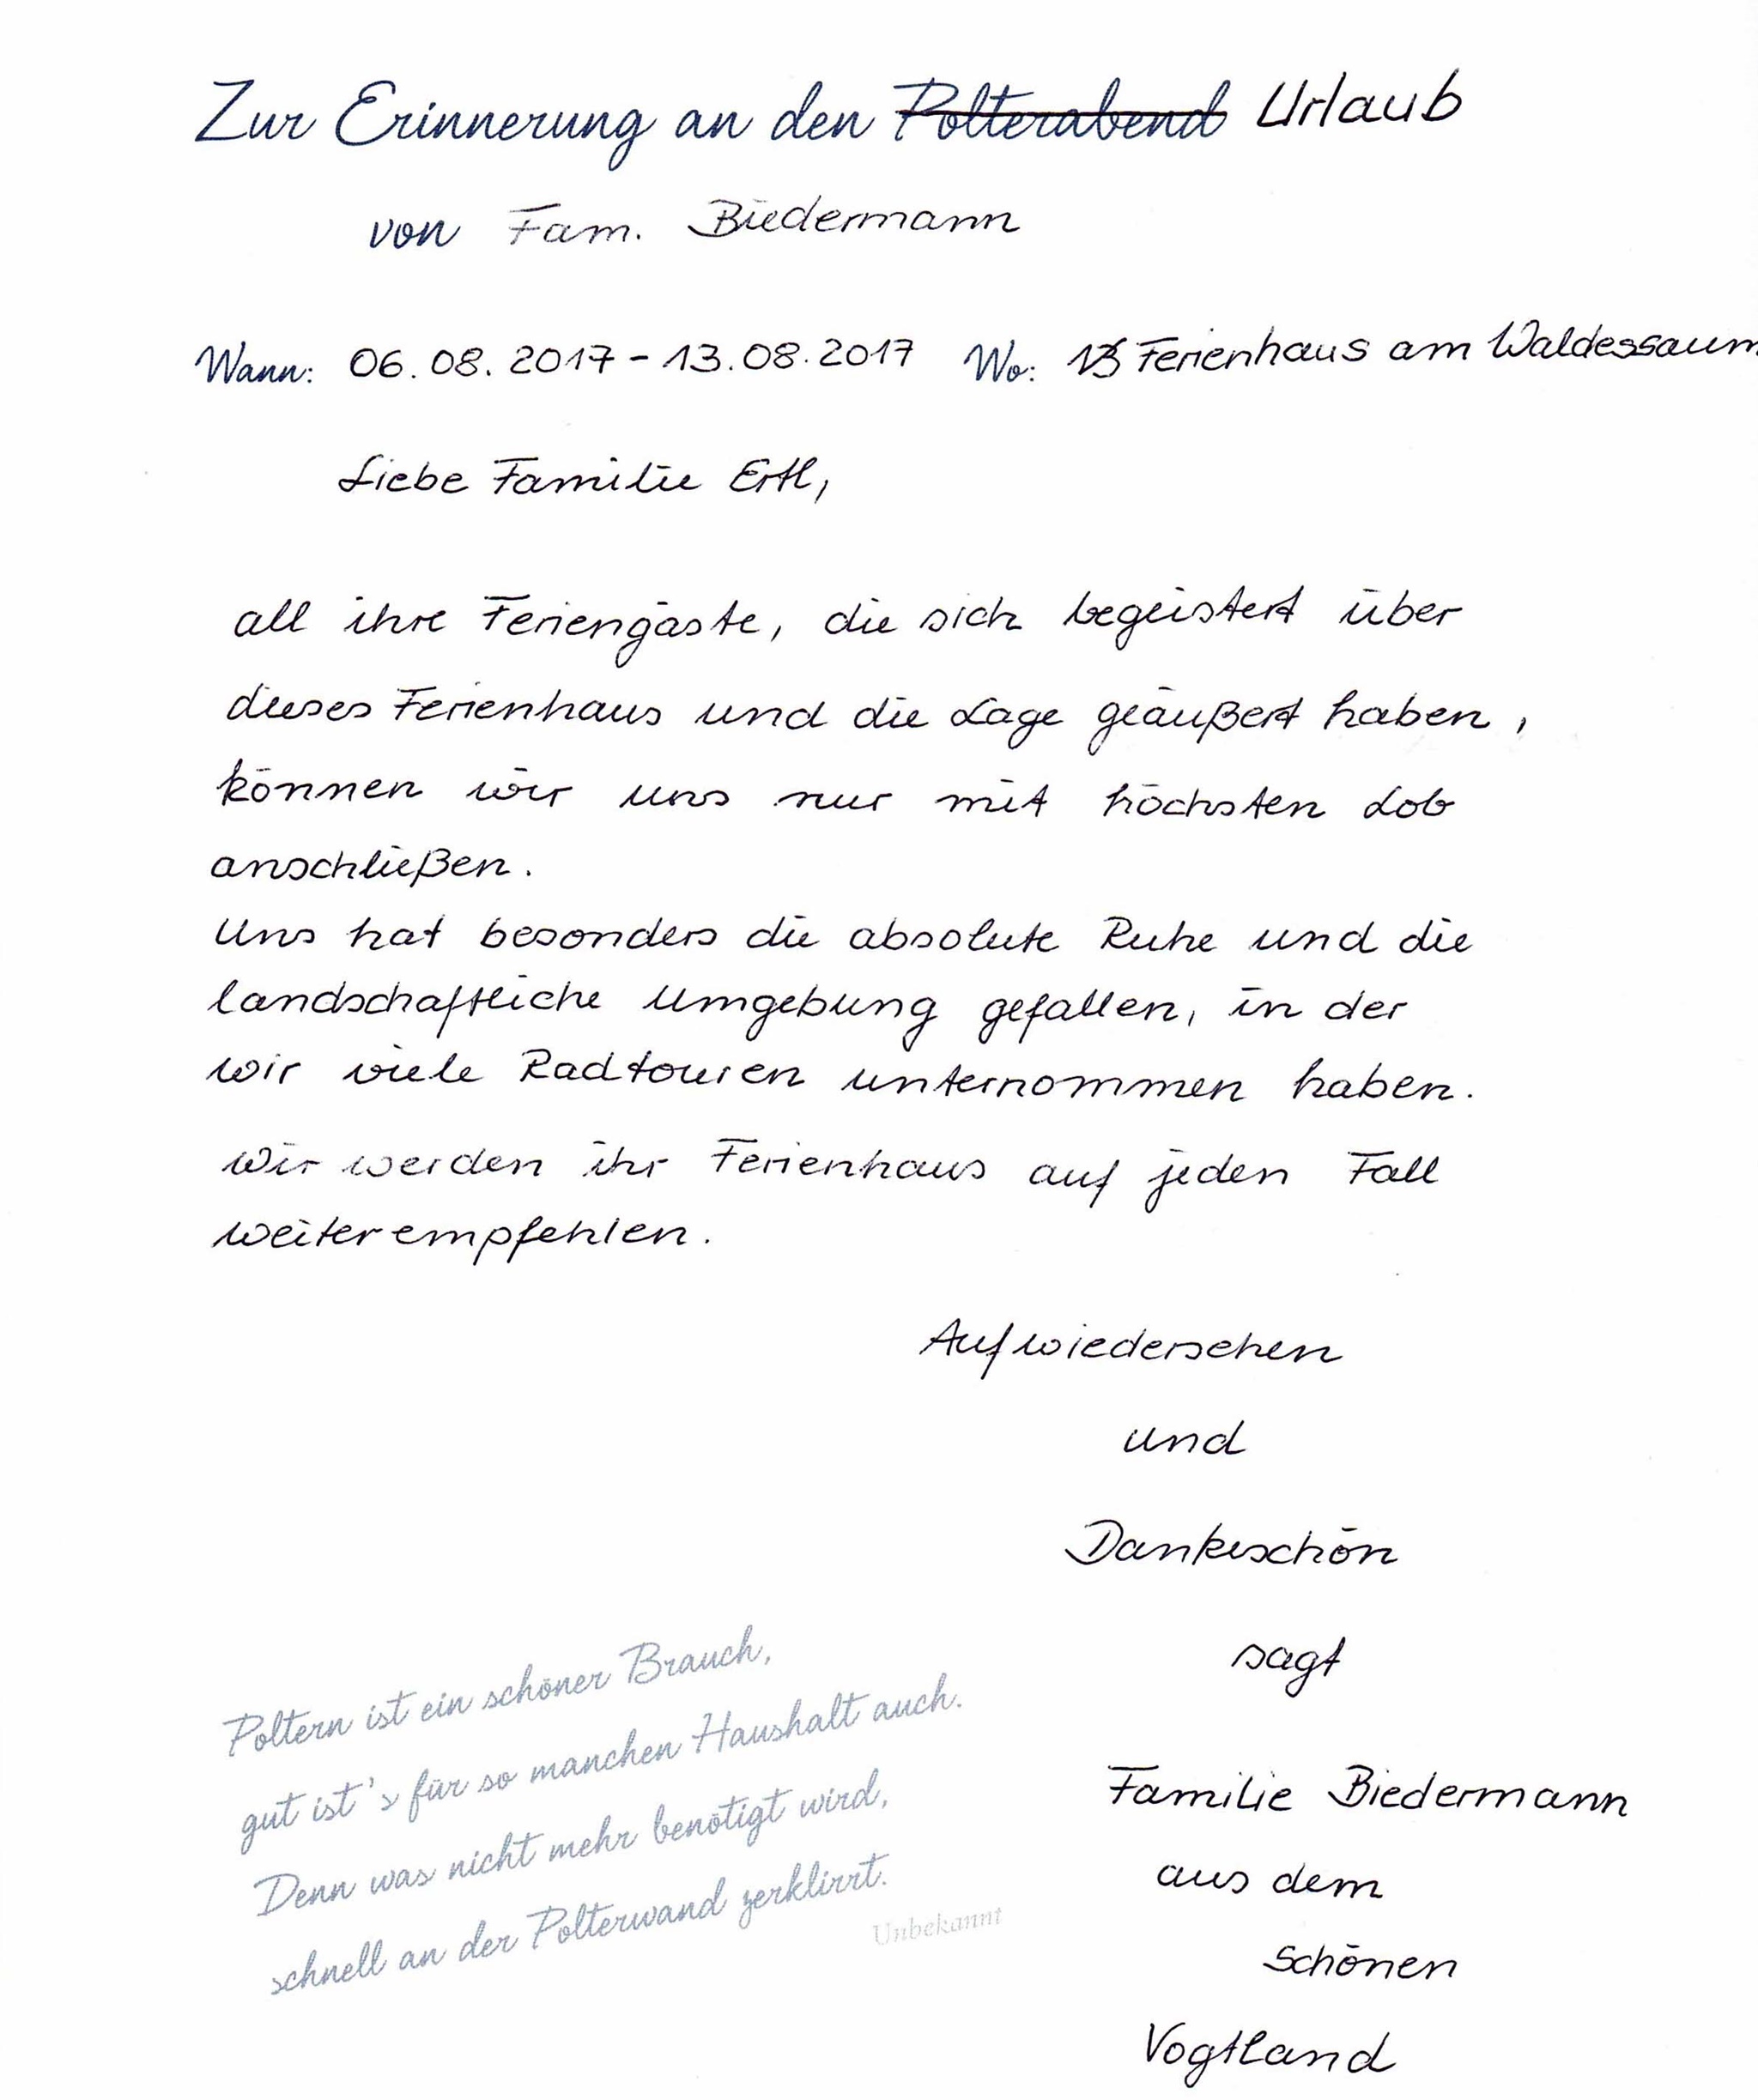 Zur Erinnerung an den Polterabend Urlaub
von Fam. Biedermann
Wann: 06.08.2017 - 13.08.2017 Wo: Ferienhaus am Waldessaum
Liebe Familie Ertl,
all ihre Feriengäste, die sich begeistert über
dieses Ferienhaus und die Lage geäußert haben,
können wir uns nur mit höchsten Lob
anschließen.
Uns hat besonders die absolute Ruhe und die
landschaftliche Umgebung gefallen, in der
wir viele Radtouren unternommen haben.
Wir werden ihr Ferienhaus auf jeden Fall
weiterempfehlen.
Aufwiedersehen
und
Dankeschön
sagt
Familie Biedermann
aus dem
Schönen
Vogtland
Poltern ist ein schöner Brauch,
gut ist's für so manchen Haushalt auch.
Denn was nicht mehr benötigt wird,
schnell an der Polterwand zerklirrt.
Unbekannt